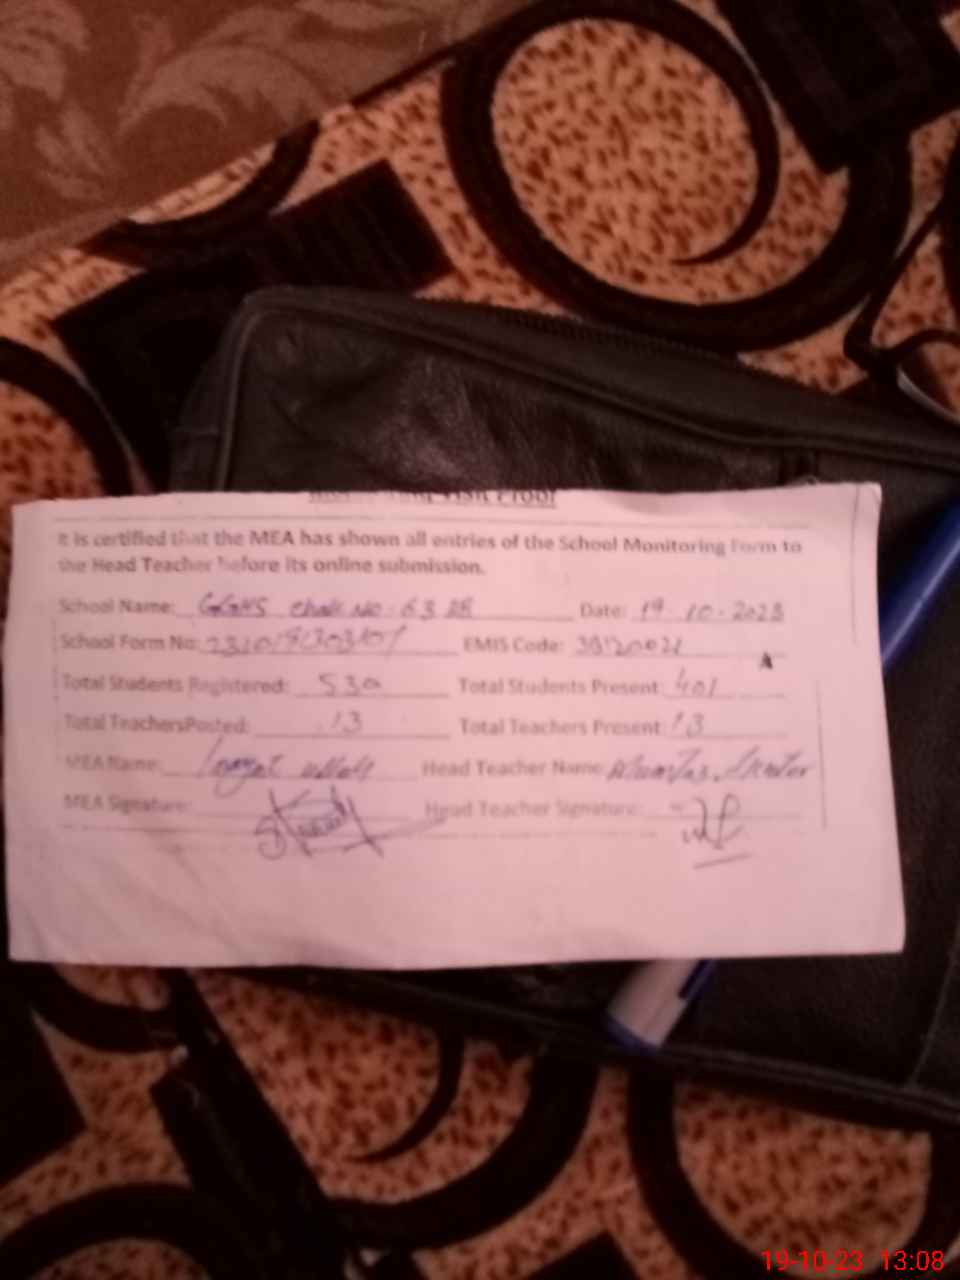 Visit Proof
It is certified that the MEA has shown all entries of the School Monitoring Form to
the Head Teacher before its online submission.
School Name: GGHS Chak No. 63 Date: 19.10.2023
School Form No: EMIS Code:
Total Students Registered: 530 Total Students Present: 401
Total TeachersPosted: 13 Total Teachers Present: 13
MEA Name: Head Teacher Name: Mumtaz
MEA Signature: Head Teacher Signature:
19-10-23 13:08